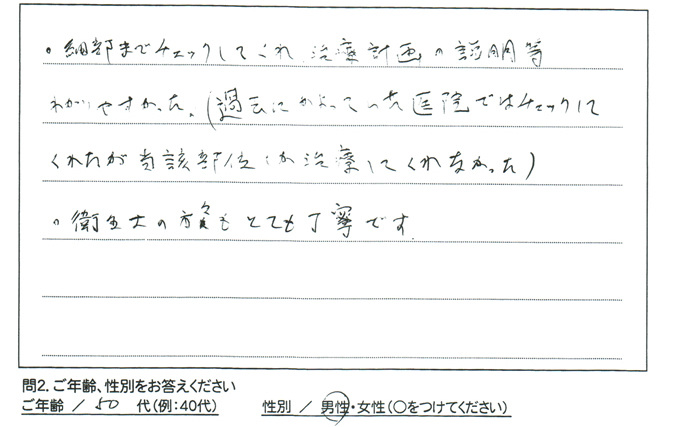 。細部までチェックしてくれ、治療計画の説明等
わかりやすかった。(過去にかよっていた医院ではチェックして
くれたが当該部位しか治療してくれなかった)
。衛生士の方々もとても丁寧です。
問2.ご年齢、性別をお答えください
ご年齢 / 50 代(例:40代) 性別 / 男性・女性(○をつけてください)